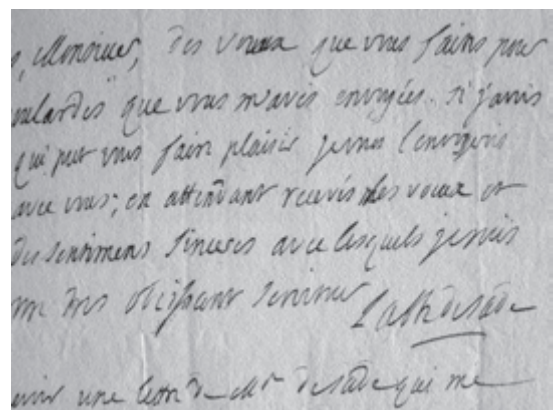 s, Monsieur, des voeux que vous faites pour
oulardes que vous m'avés envoyées. si j'avois
qui put vous faire plaisir je vous l'envoyerois
avec vous; en attendant recevés mes voeux et
des sentimens sinceres avec lesquels je suis
votre tres obeissant serviteur L'abbé de Sade
une lettre de Mr de Sade qui me